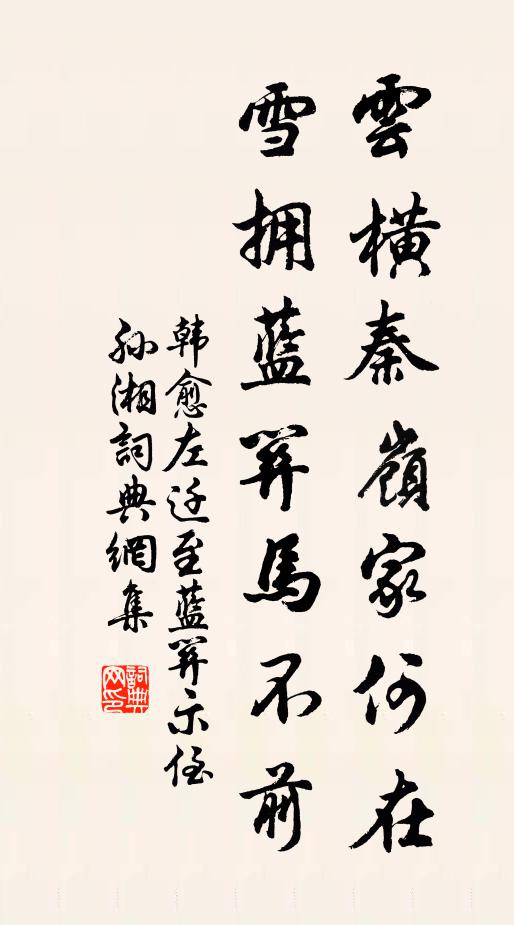 雲橫秦嶺家何在
雪拥藍関馬不前
韩愈左迁至藍関示侄
孙湘詞典網集
詞典网印